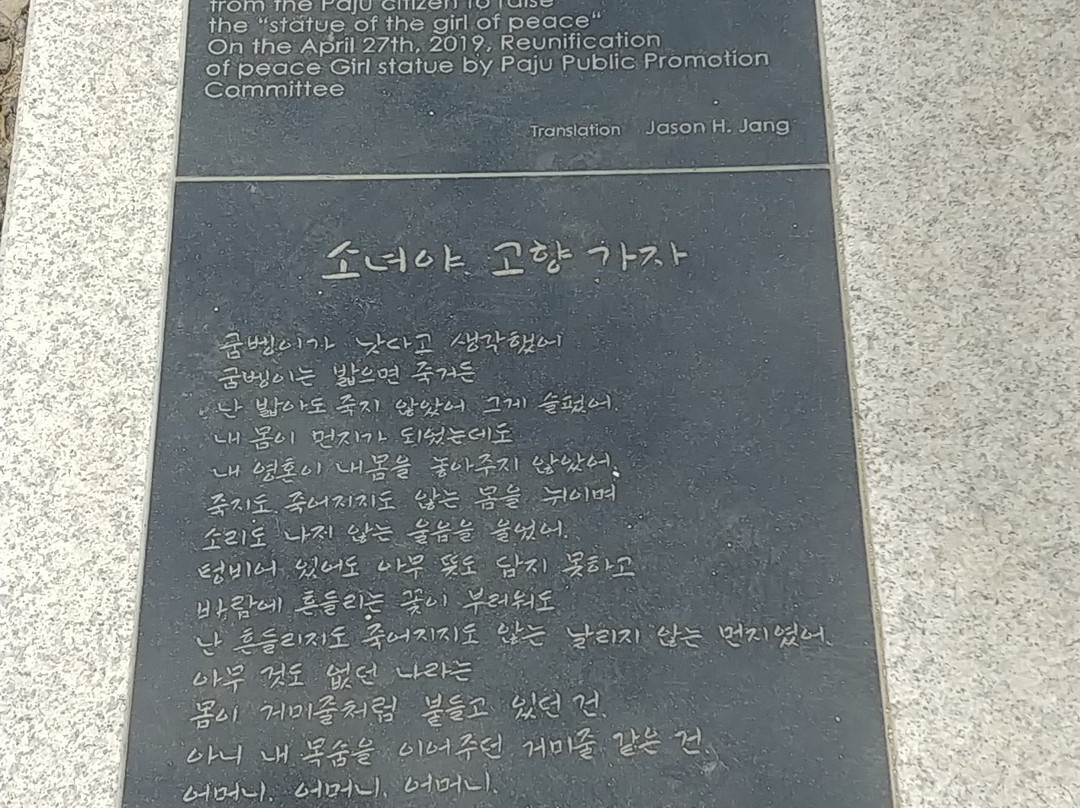 from the Paju citizen to raise
the "statue of the girl of peace"
On the April 27th, 2019, Reunification
of peace Girl statue by Paju Public Promotion
Committee
Translation Jason H. Jang
소녀야 고향 가자
굼벵이가 낫다고 생각했어
굼벵이는 밟으면 죽거든
난 밟아도 죽지 않았어. 그게 슬펐어.
내 몸이 먼지가 되었는데도
내 영혼이 내몸을 놓아주지 않았어.
죽지도 죽어지지도 않는 몸을 뉘이며
소리도 나지 않는 울음을 울었어.
텅비어 있어도 아무 뜻도 담지 못하고
바람에 흔들리는 꽃이 부러워도
난 흔들리지도 죽어지지도 않는 날리지 않는 먼지였어.
아무 것도 없던 나라는
몸이 거미줄처럼 붙들고 있던 건.
아니 내 목숨을 이어주던 거미줄 같은 건.
어머니. 어머니. 어머니.